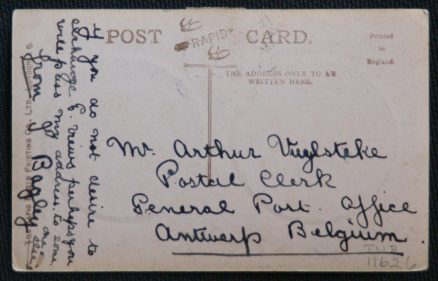 POST CARD.
RAPID
Printed
in
England.
THE ADDRESS ONLY TO BE
WRITTEN HERE.
If you do not desire to
exchange P. views perhaps you
will pass my address to some
one else
from J Bagley
Mr. Arthur Vuylsteke
Postal Clerk
General Post. Office
Antwerp Belgium.
11626